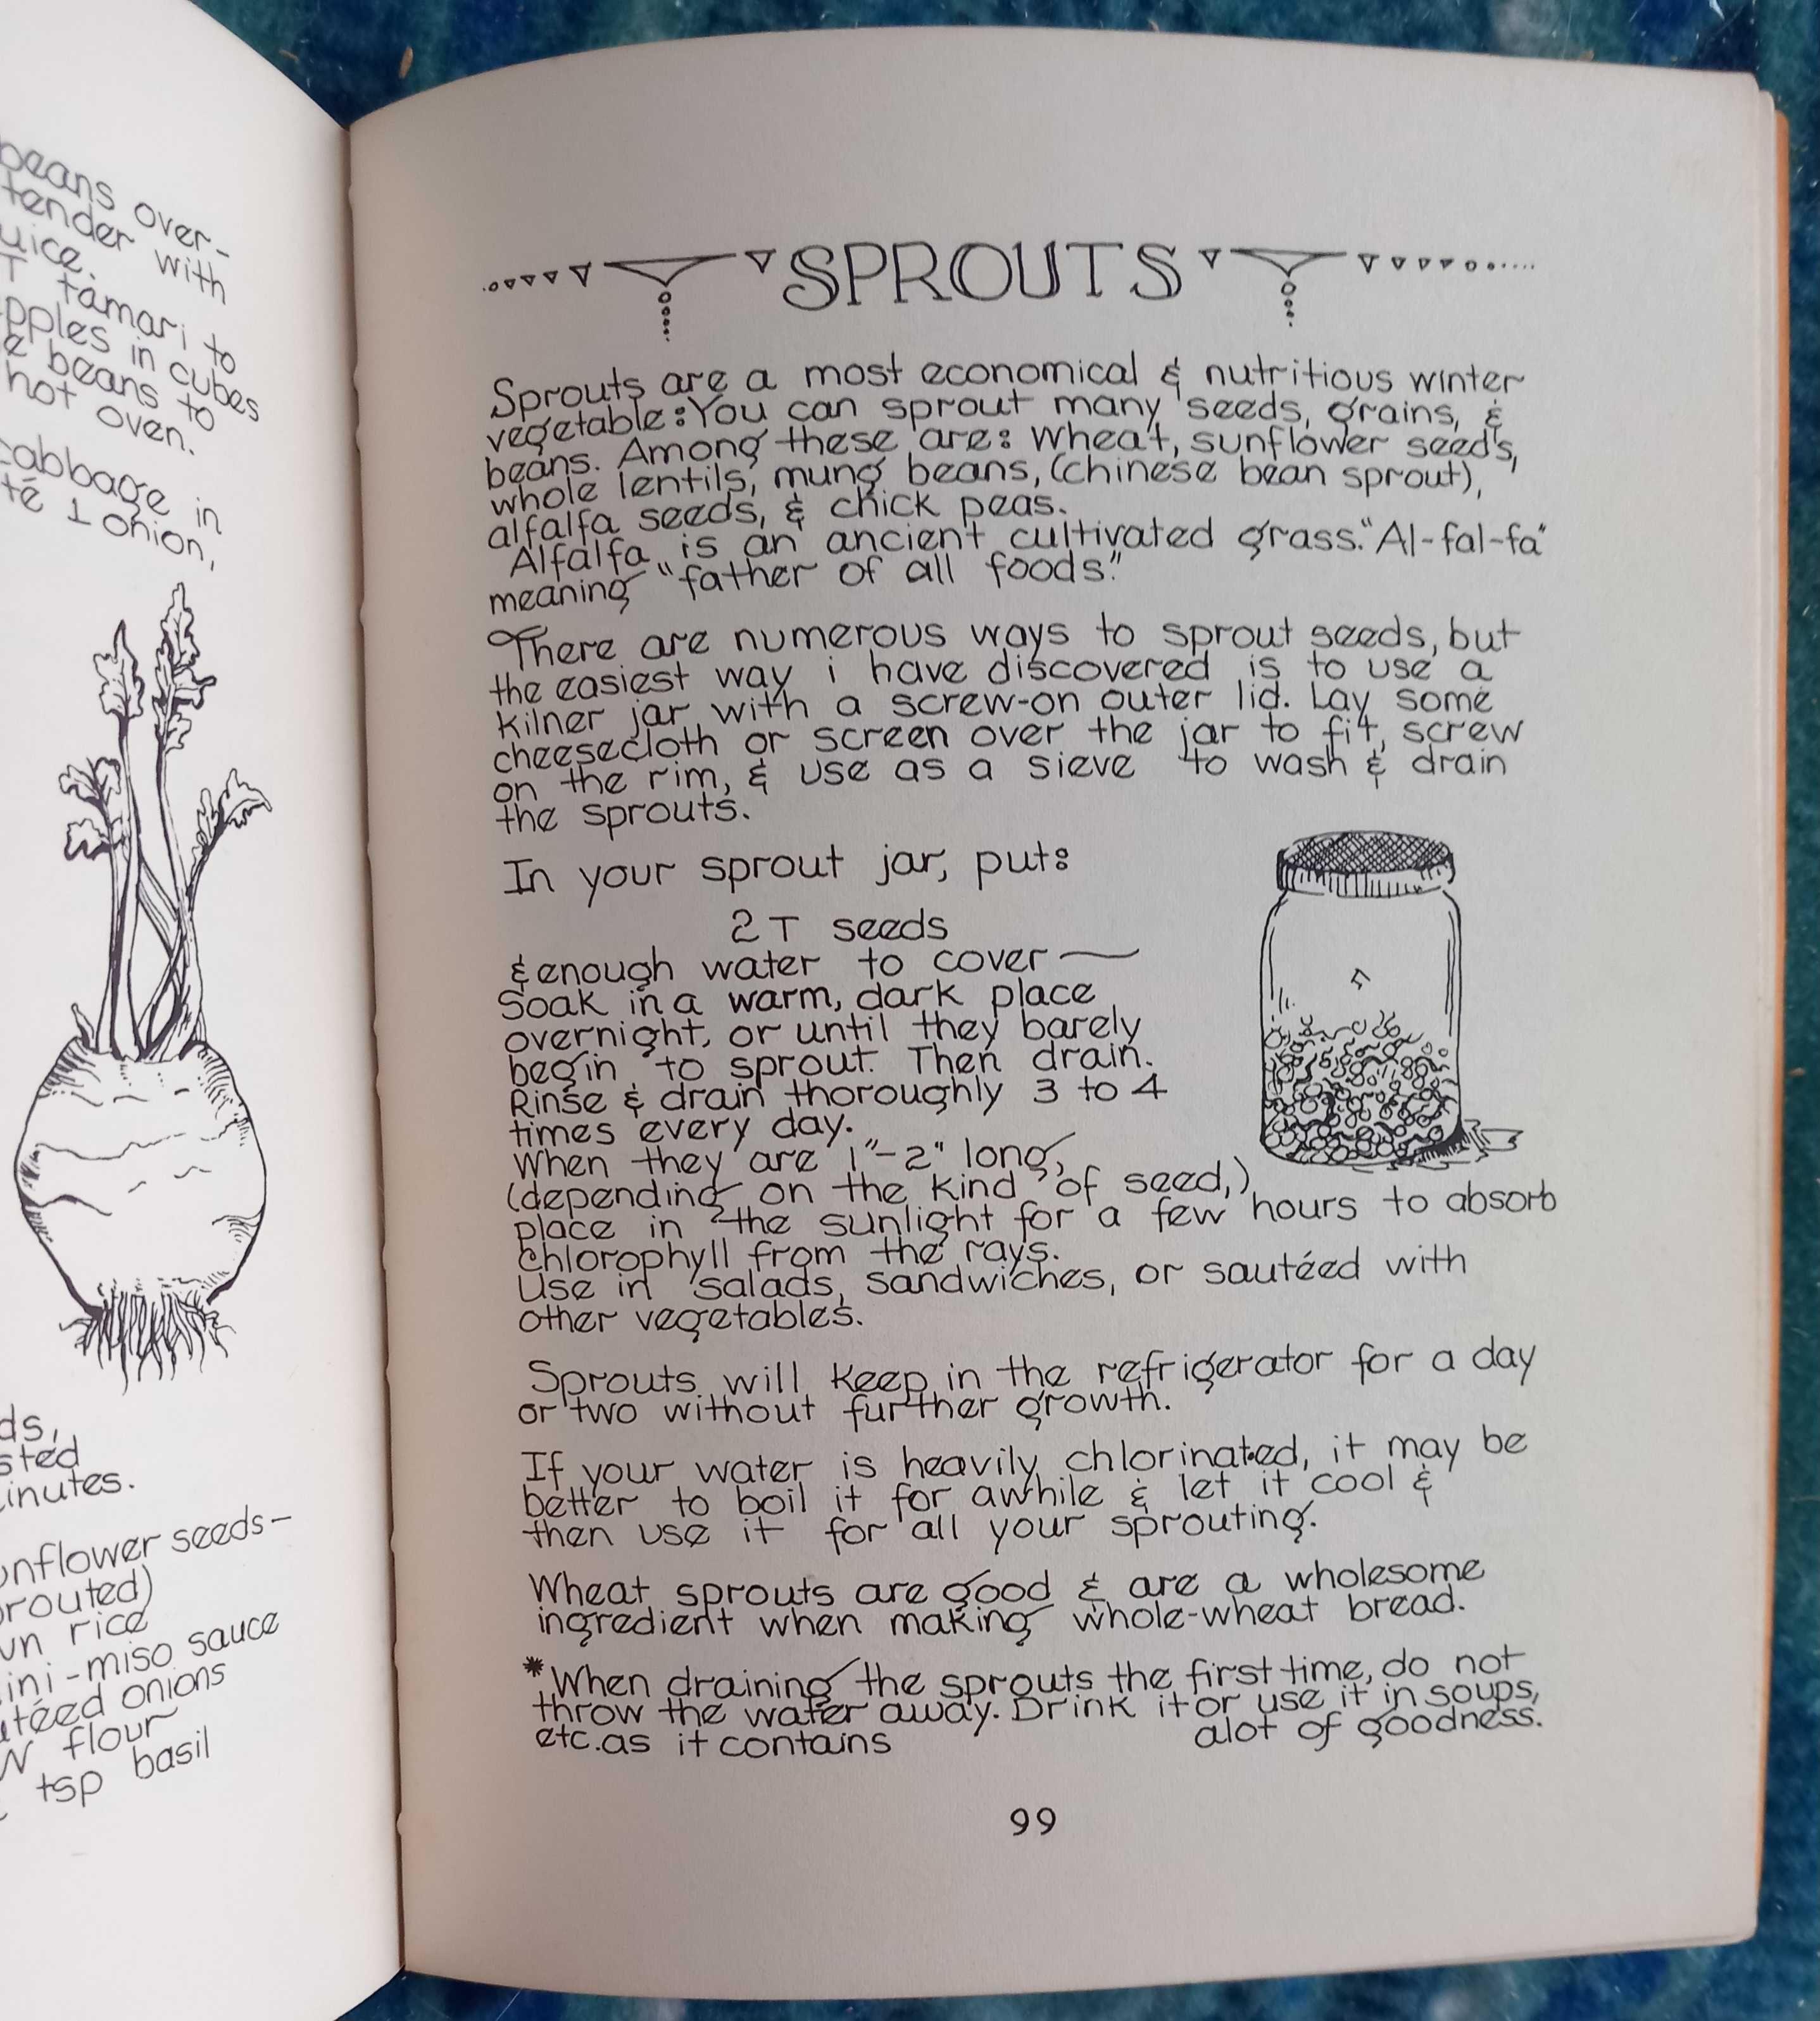 beans over-
tender with
uice.
T tamari to
pples in cubes
e beans to
hot oven.
cabbage in
té 1 onion,
ds,
sted
inutes.
unflower seeds-
prouted)
wn rice
ini-miso sauce
utéed onions
flour
tsp basil
SPROUTS
Sprouts are a most economical & nutritious winter
vegetable: You can sprout many seeds, grains, &
beans. Among these are: wheat, sunflower seeds,
whole lentils, mung beans, (chinese bean sprout),
alfalfa seeds, & chick peas.
Alfalfa is an ancient cultivated grass. "Al-fal-fa"
meaning "father of all foods."
There are numerous ways to sprout seeds, but
the easiest way i have discovered is to use a
Kilner jar with a screw-on outer lid. Lay some
cheesecloth or screen over the jar to fit, screw
on the rim, & use as a sieve to wash & drain
the sprouts.
In your sprout jar, put:
2 T seeds
& enough water to cover —
Soak in a warm, dark place
overnight, or until they barely
begin to sprout. Then drain.
Rinse & drain thoroughly 3 to 4
times every day.
When they are 1"-2" long,
(depending on the kind of seed,)
place in the sunlight for a few hours to absorb
chlorophyll from the rays.
Use in salads, sandwiches, or sautéed with
other vegetables.
Sprouts will keep in the refrigerator for a day
or two without further growth.
If your water is heavily chlorinated, it may be
better to boil it for awhile & let it cool &
then use it for all your sprouting.
Wheat sprouts are good & are a wholesome
ingredient when making whole-wheat bread.
*When draining the sprouts the first time, do not
throw the water away. Drink it or use it in soups,
etc. as it contains alot of goodness.
99